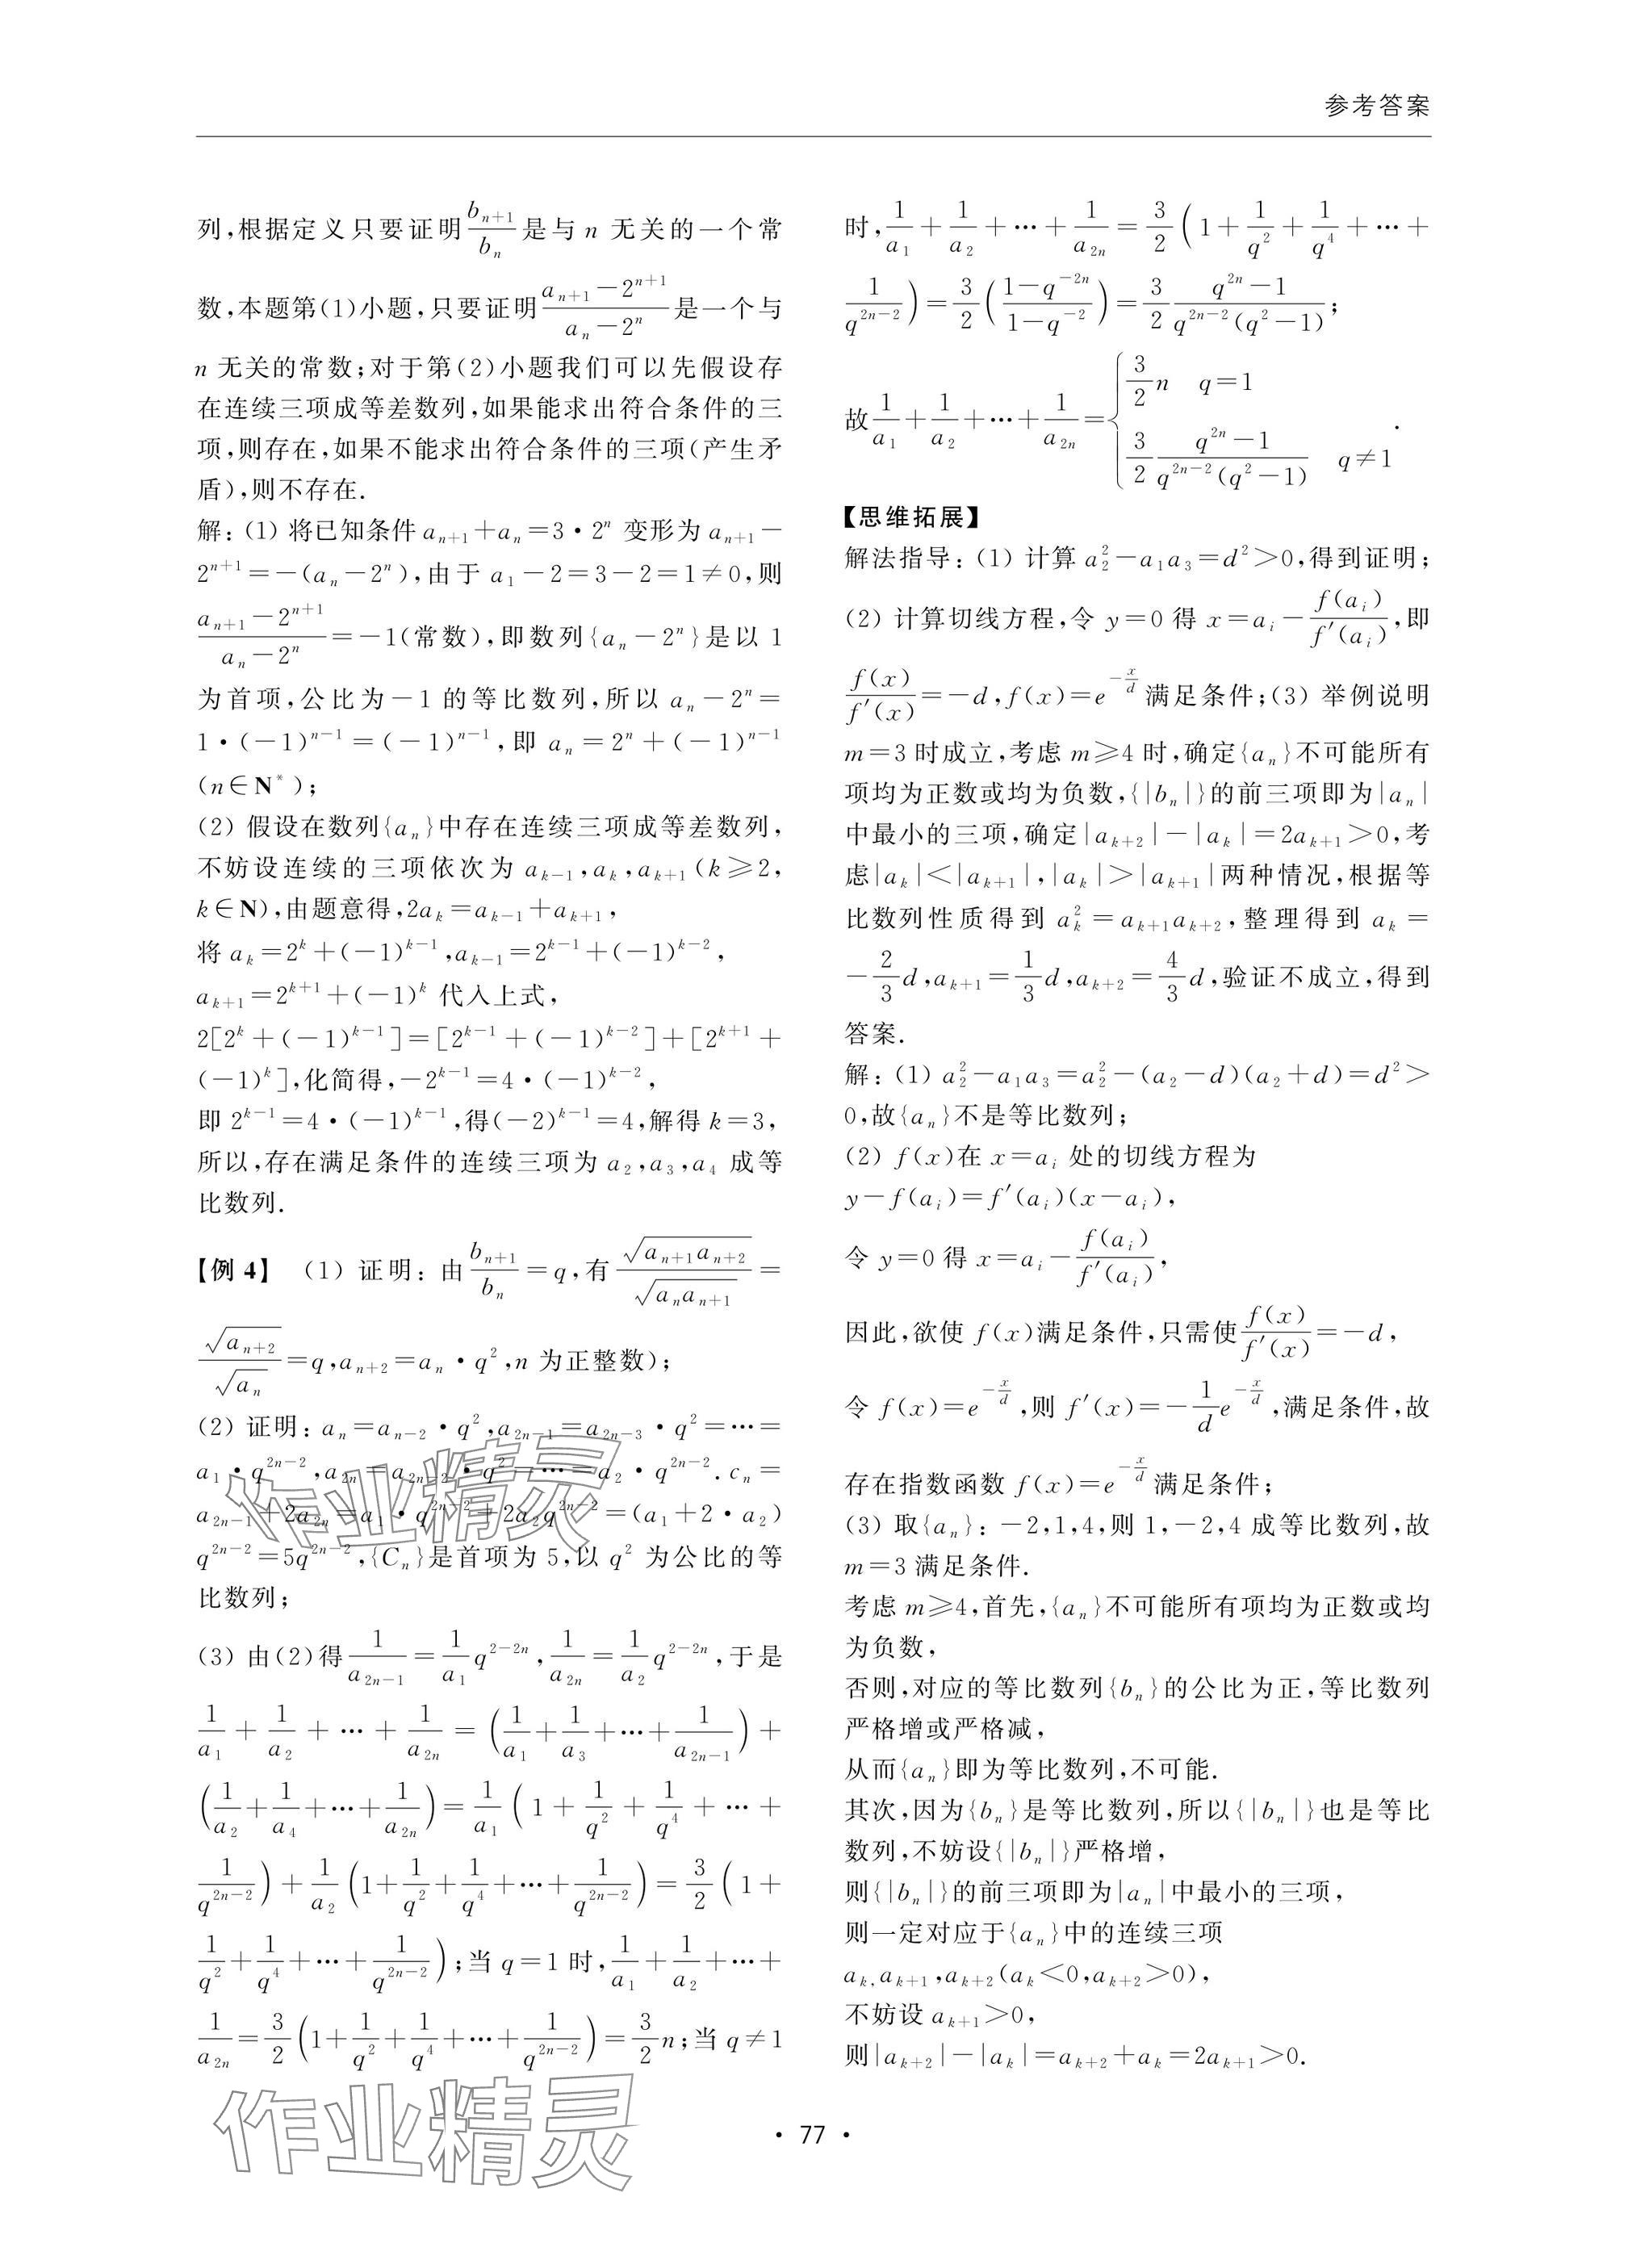 参考答案
列,根据定义只要证明\frac{b_{n+1}}{b_n}是与 n 无关的一个常
数,本题第(1)小题,只要证明\frac{a_{n+1}-2^{n+1}}{a_n-2^n}是一个与
n 无关的常数;对于第(2)小题我们可以先假设存
在连续三项成等差数列,如果能求出符合条件的三
项,则存在,如果不能求出符合条件的三项(产生矛
盾),则不存在.
解:(1) 将已知条件 a_{n+1}+a_n=3·2^n 变形为 a_{n+1}-
2^{n+1}=-(a_n-2^n),由于 a_1-2=3-2=1≠0,则
\frac{a_{n+1}-2^{n+1}}{a_n-2^n}=-1(常数),即数列{a_n-2^n}是以 1
为首项,公比为-1 的等比数列,所以 a_n-2^n=
1·(-1)^{n-1}=(-1)^{n-1},即 a_n=2^n+(-1)^{n-1}
(n∈N^*);
(2) 假设在数列{a_n}中存在连续三项成等差数列,
不妨设连续的三项依次为 a_{k-1},a_k,a_{k+1}(k≥2,
k∈N),由题意得,2a_k=a_{k-1}+a_{k+1},
将 a_k=2^k+(-1)^{k-1},a_{k-1}=2^{k-1}+(-1)^{k-2},
a_{k+1}=2^{k+1}+(-1)^k 代入上式,
2[2^k+(-1)^{k-1}]=[2^{k-1}+(-1)^{k-2}]+[2^{k+1}+
(-1)^k],化简得,-2^{k-1}=4·(-1)^{k-2},
即 2^{k-1}=4·(-1)^{k-1},得(-2)^{k-1}=4,解得 k=3,
所以,存在满足条件的连续三项为 a_2,a_3,a_4 成等
比数列.
【例 4】 (1) 证明:由\frac{b_{n+1}}{b_n}=q,有\frac{\sqrt{a_{n+1}a_{n+2}}}{\sqrt{a_na_{n+1}}}=
\frac{\sqrt{a_{n+2}}}{\sqrt{a_n}}=q,a_{n+2}=a_n·q^2,n 为正整数);
(2) 证明:a_n=a_{n-2}·q^2,a_{2n-1}=a_{2n-3}·q^2=…=
a_1·q^{2n-2},a_{2n}=a_{2n-2}·q^2=…=a_2·q^{2n-2}.c_n=
a_{2n-1}+2a_{2n}=a_1·q^{2n-2}+2a_2q^{2n-2}=(a_1+2·a_2)
q^{2n-2}=5q^{2n-2},{C_n}是首项为 5,以 q^2 为公比的等
比数列;
(3) 由(2)得\frac{1}{a_{2n-1}}=\frac{1}{a_1}q^{2-2n},\frac{1}{a_{2n}}=\frac{1}{a_2}q^{2-2n},于是
\frac{1}{a_1}+\frac{1}{a_2}+…+\frac{1}{a_{2n}}=(\frac{1}{a_1}+\frac{1}{a_3}+…+\frac{1}{a_{2n-1}})+
(\frac{1}{a_2}+\frac{1}{a_4}+…+\frac{1}{a_{2n}})=\frac{1}{a_1}(1+\frac{1}{q^2}+\frac{1}{q^4}+…+
\frac{1}{q^{2n-2}})+\frac{1}{a_2}(1+\frac{1}{q^2}+\frac{1}{q^4}+…+\frac{1}{q^{2n-2}})=\frac{3}{2}(1+
\frac{1}{q^2}+\frac{1}{q^4}+…+\frac{1}{q^{2n-2}});当 q=1 时,\frac{1}{a_1}+\frac{1}{a_2}+…+
\frac{1}{a_{2n}}=\frac{3}{2}(1+\frac{1}{q^2}+\frac{1}{q^4}+…+\frac{1}{q^{2n-2}})=\frac{3}{2}n;当 q≠1
时,\frac{1}{a_1}+\frac{1}{a_2}+…+\frac{1}{a_{2n}}=\frac{3}{2}(1+\frac{1}{q^2}+\frac{1}{q^4}+…+
\frac{1}{q^{2n-2}})=\frac{3}{2}(\frac{1-q^{-2n}}{1-q^{-2}})=\frac{3}{2}\frac{q^{2n}-1}{q^{2n-2}(q^2-1)};
故\frac{1}{a_1}+\frac{1}{a_2}+…+\frac{1}{a_{2n}}=\begin{cases}\frac{3}{2}n & q=1 \\ \frac{3}{2}\frac{q^{2n}-1}{q^{2n-2}(q^2-1)} & q≠1\end{cases}.
【思维拓展】
解法指导:(1) 计算 a_2^2-a_1a_3=d^2>0,得到证明;
(2) 计算切线方程,令 y=0 得 x=a_i-\frac{f(a_i)}{f'(a_i)},即
\frac{f(x)}{f'(x)}=-d,f(x)=e^{-\frac{x}{d}}满足条件;(3) 举例说明
m=3 时成立,考虑 m≥4 时,确定{a_n}不可能所有
项均为正数或均为负数,{|b_n|}的前三项即为|a_n|
中最小的三项,确定|a_{k+2}|-|a_k|=2a_{k+1}>0,考
虑|a_k|<|a_{k+1}|,|a_k|>|a_{k+1}|两种情况,根据等
比数列性质得到 a_k^2=a_{k+1}a_{k+2},整理得到 a_k=
-\frac{2}{3}d,a_{k+1}=\frac{1}{3}d,a_{k+2}=\frac{4}{3}d,验证不成立,得到
答案.
解:(1) a_2^2-a_1a_3=a_2^2-(a_2-d)(a_2+d)=d^2>
0,故{a_n}不是等比数列;
(2) f(x)在 x=a_i 处的切线方程为
y-f(a_i)=f'(a_i)(x-a_i),
令 y=0 得 x=a_i-\frac{f(a_i)}{f'(a_i)},
因此,欲使 f(x)满足条件,只需使\frac{f(x)}{f'(x)}=-d,
令 f(x)=e^{-\frac{x}{d}},则 f'(x)=-\frac{1}{d}e^{-\frac{x}{d}},满足条件,故
存在指数函数 f(x)=e^{-\frac{x}{d}}满足条件;
(3) 取{a_n}:-2,1,4,则 1,-2,4 成等比数列,故
m=3 满足条件.
考虑 m≥4,首先,{a_n}不可能所有项均为正数或均
为负数,
否则,对应的等比数列{b_n}的公比为正,等比数列
严格增或严格减,
从而{a_n}即为等比数列,不可能.
其次,因为{b_n}是等比数列,所以{|b_n|}也是等比
数列,不妨设{|b_n|}严格增,
则{|b_n|}的前三项即为|a_n|中最小的三项,
则一定对应于{a_n}中的连续三项
a_k,a_{k+1},a_{k+2}(a_k<0,a_{k+2}>0),
不妨设 a_{k+1}>0,
则|a_{k+2}|-|a_k|=a_{k+2}+a_k=2a_{k+1}>0.
作业精灵
作业精灵
· 77 ·